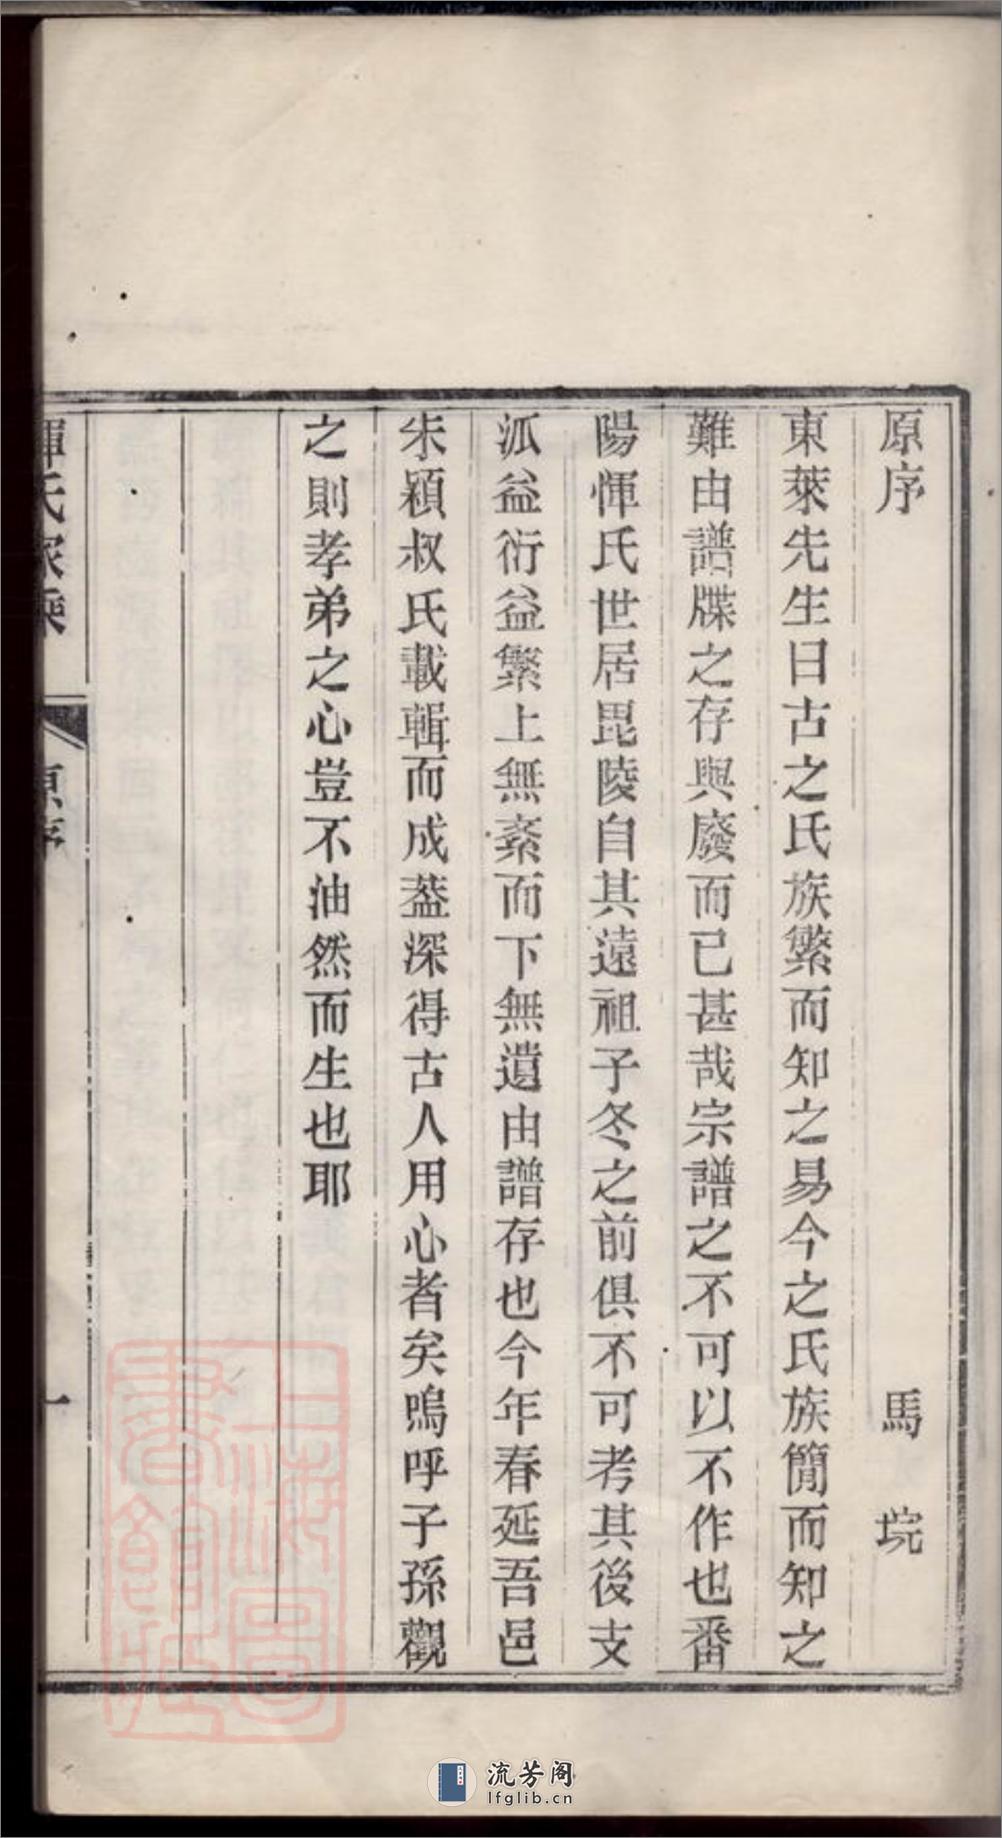 原序
馬垸
東萊先生曰古之氏族繁而知之易今之氏族簡而知之
難由譜牒之存與廢而已甚哉宗譜之不可以不作也番
陽惲氏世居毘陵自其遠祖子冬之前俱不可考其後支
派益衍益繁上無紊而下無遺由譜存也今年春延吾邑
朱穎叔氏載輯而成葢深得古人用心者矣嗚呼子孫觀
之則孝弟之心豈不油然而生也耶
惲氏家乘
原序
一
上海圖書館藏
流芳阁
lfglib.cn